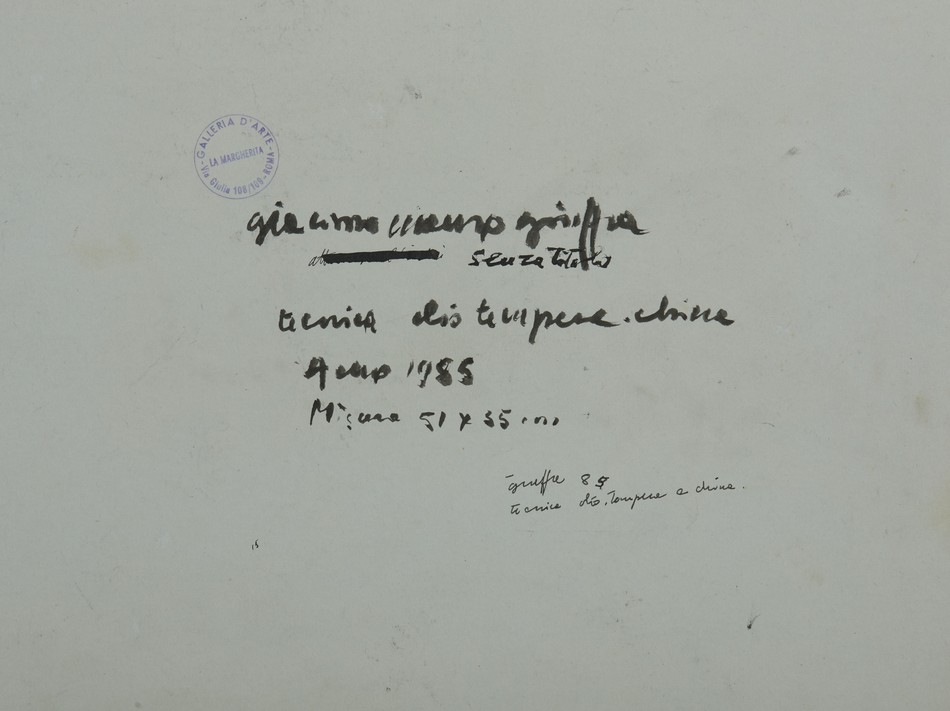 GALLERIA D'ARTE
LA MARGHERITA
Via Giulia 108/109 - ROMA
giacomo mauro giuffra
senza titolo
tecnica olio tempera.china
Anno 1985
Misura 51 x 35 cm
giuffra 85
tecnica olio, tempera e china.